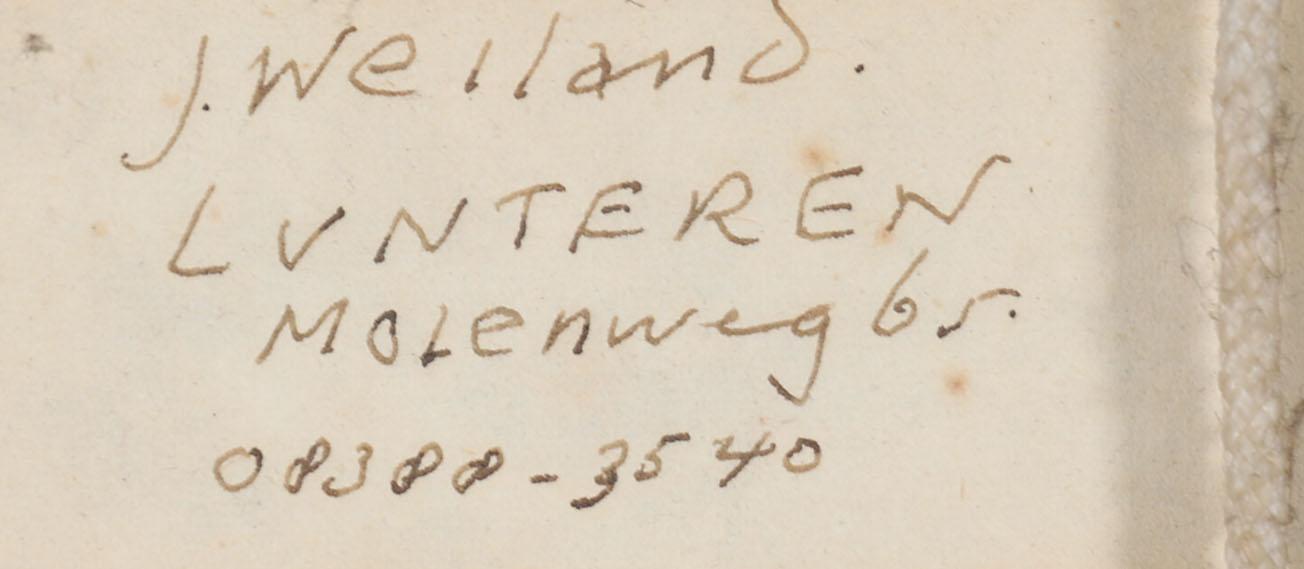 J. Weiland.
LUNTEREN
Molenweg 65.
08388-3540